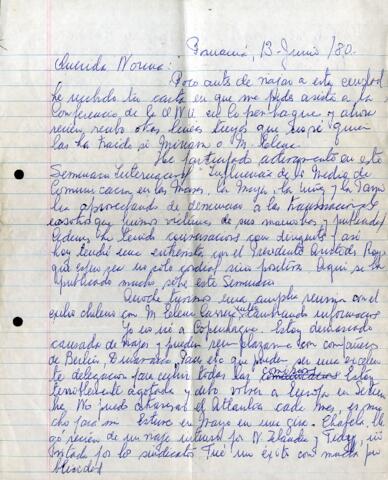 Panamá, 13 Junio /80.
Querida Norma:
Poco antes de viajar a esta ciudad
he recibido tu carta en que me pides asista a la
Conferencia de la O.N.U. en Copenhague y ahora
recién recibo otras líneas tuyas que no sé quien
las ha traído si Miriam o M. Elena.
He participado activamente en este
Seminario Interregional Influencia de los Medios de
Comunicación en las Mujeres, la Mujer, la Niñez y la Fami
lia aprovechando de denunciar a las trasnacionales
que fuimos víctimas de sus maniobras y
Además he tenido conversaciones con dirigentes y así
hoy tendré una entrevista con el Presidente Arístides Royo
que espero sea en esto positiva. Aquí se ha
publicado mucho sobre este Seminario.
Anoche tuvimos una amplia reunión con el
exilio chileno con M. Elena Carrera, intercambiando informaciones
Yo no iré a Copenhague. Estoy demasiado
cansada de viajes y pueden reemplazarme compañeras
de Berlín, Dinamarca, París etc que pueden ser una excelen
te delegación para cubrir todas las Estoy
terriblemente agotada y debo volver a Europa en Setiem
bre. No puedo atravesar el Atlántico cada mes, es mu
cho para mi. Estuve en Mayo en una gira. Chafela lle
gó recién de una viaje cultural por N. Zelandia y in
vitado por los sindicatos. Fué un éxito con mucha pu
blicidad